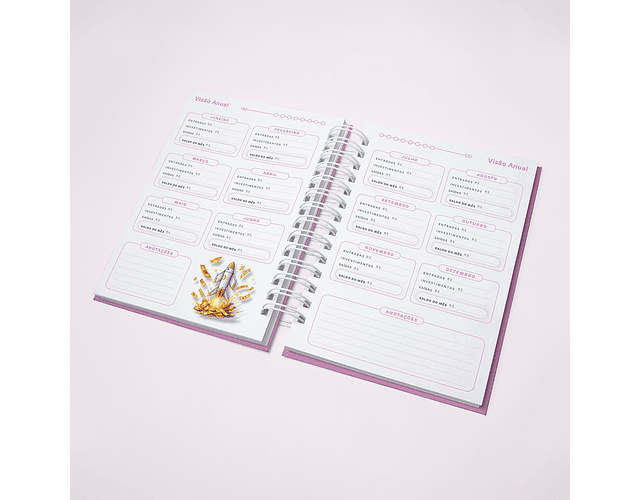 Visão Anual
JANEIRO
ENTRADAS R$
INVESTIMENTOS R$
SAÍDAS R$
SALDO DO MÊS R$
FEVEREIRO
ENTRADAS R$
INVESTIMENTOS R$
SAÍDAS R$
SALDO DO MÊS R$
MARÇO
ENTRADAS R$
INVESTIMENTOS R$
SAÍDAS R$
SALDO DO MÊS R$
ABRIL
ENTRADAS R$
INVESTIMENTOS R$
SAÍDAS R$
SALDO DO MÊS R$
MAIO
ENTRADAS R$
INVESTIMENTOS R$
SAÍDAS R$
SALDO DO MÊS R$
JUNHO
ENTRADAS R$
INVESTIMENTOS R$
SAÍDAS R$
SALDO DO MÊS R$
ANOTAÇÕES
Visão Anual
JULHO
ENTRADAS R$
INVESTIMENTOS R$
SAÍDAS R$
SALDO DO MÊS R$
AGOSTO
ENTRADAS R$
INVESTIMENTOS R$
SAÍDAS R$
SALDO DO MÊS R$
SETEMBRO
ENTRADAS R$
INVESTIMENTOS R$
SAÍDAS R$
SALDO DO MÊS R$
OUTUBRO
ENTRADAS R$
INVESTIMENTOS R$
SAÍDAS R$
SALDO DO MÊS R$
NOVEMBRO
ENTRADAS R$
INVESTIMENTOS R$
SAÍDAS R$
SALDO DO MÊS R$
DEZEMBRO
ENTRADAS R$
INVESTIMENTOS R$
SAÍDAS R$
SALDO DO MÊS R$
ANOTAÇÕES